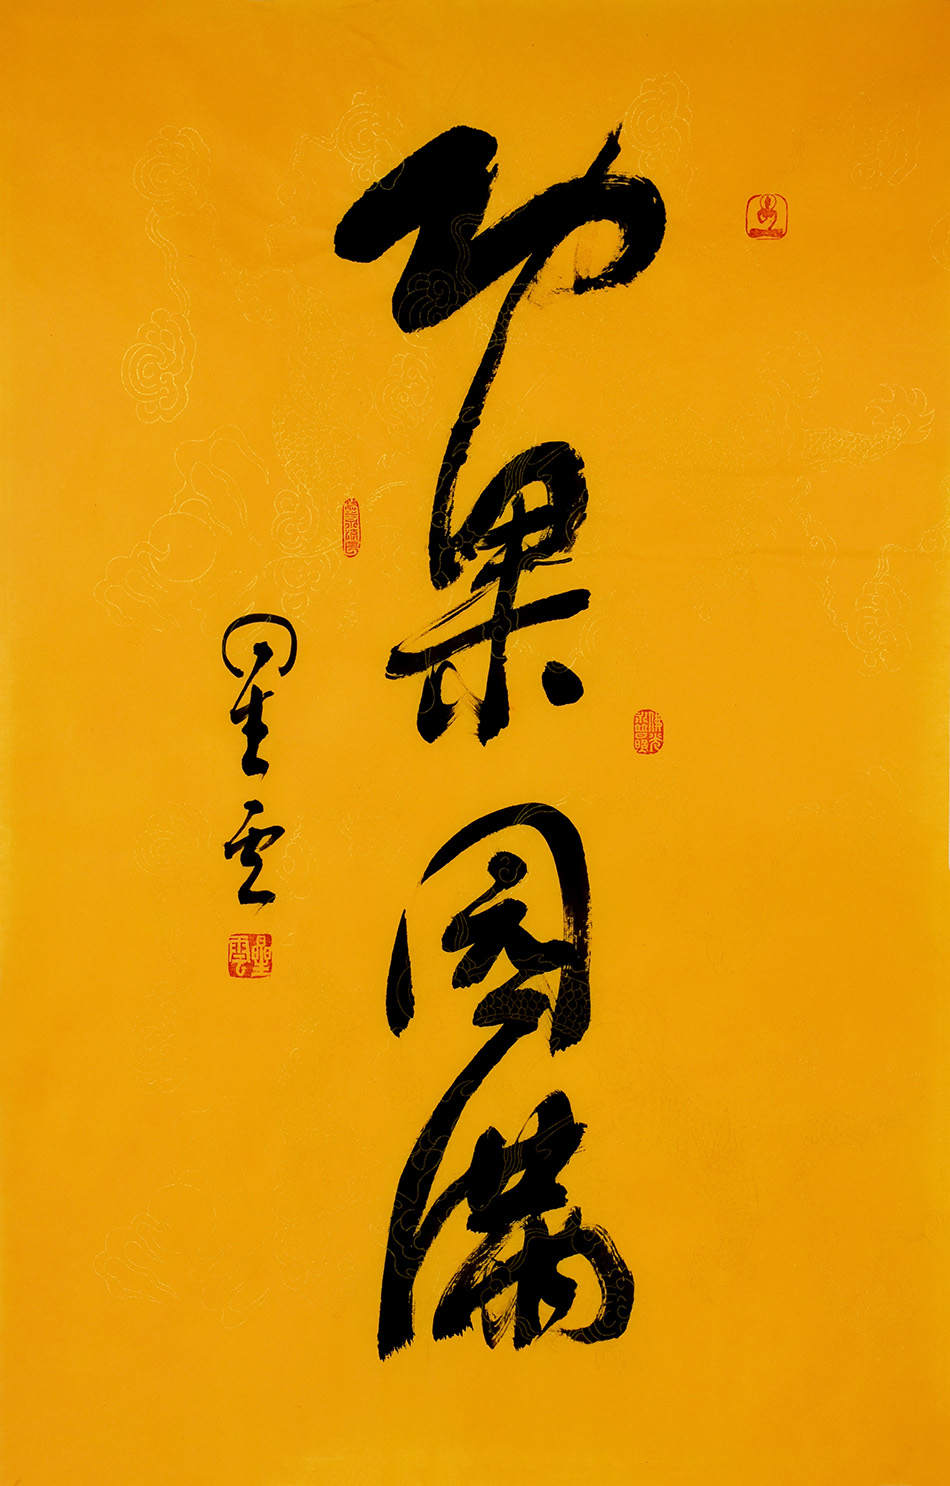 功果圓滿
星雲
星雲